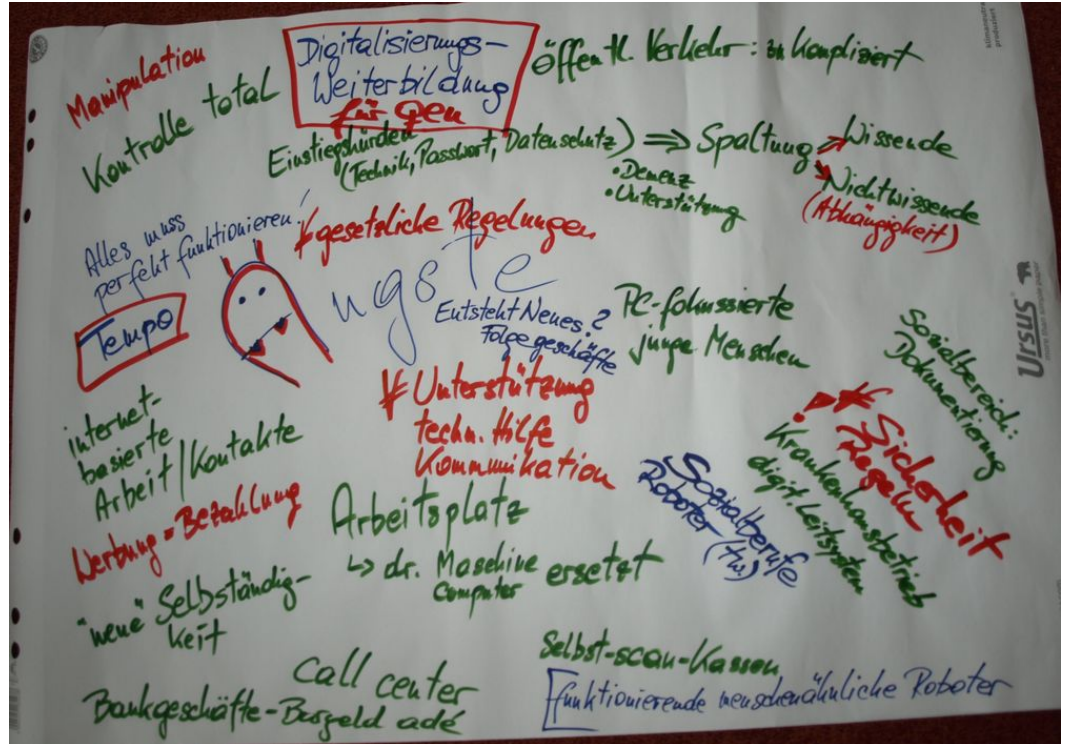 Manipulation
Kontrolle total
Digitalisierungs-
Weiterbildung
für gen
öffentl. Verkehr: zu kompliziert
Einstiegshürden
(Technik, Passwort, Datenschutz) ⇒ Spaltung
Wissende
Nichtwissende
(Abhängigkeit)
• Demenz
• Unterstützung
Alles muss
perfekt funktionieren!
gesetzliche Regelungen
Tempo
ngste
Entsteht Neues?
Folgegeschäfte
PC-fokussierte
junge Menschen
Sozialbereich:
Dokumentierung
Ursus
more than simple paper
klimaneutral
produziert
internet-
basierte
Arbeit/Kontakte
Unterstützung
techn. Hilfe
Kommunikation
Sicherheit
Regeln
Krankenhausbetrieb
digit. Leitsystem
Sozialberufe
Roboter (tw.)
Werbung = Bezahlung
Arbeitsplatz
↳ dr. Maschine ersetzt
Computer
"neue" Selbständig-
keit
Call center
Bankgeschäfte - Bargeld adé
Selbst-scan-Kassen
[funktionierende menschenähnliche Roboter